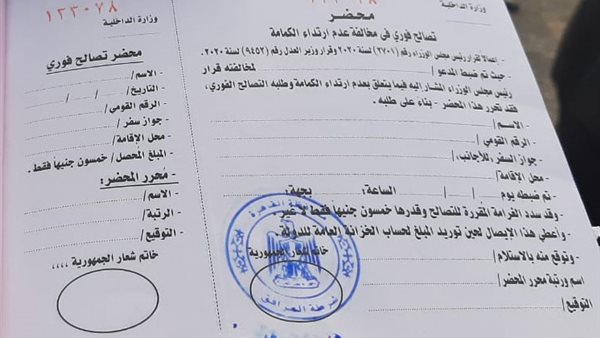 وزارة الداخلية
١٢٣٠٧٨
محضر
تصالح فوري في مخالفة عدم ارتداء الكمامة
- اعمالا لقرار رئيس مجلس الوزراء رقم (٢٧٠١) لسنة ٢٠٢٠ وقرار وزير العدل رقم (٩٤٥٢) لسنة ٢٠٢٠.
حيث تم ضبط المدعو / لمخالفته قرار
رئيس مجلس الوزراء المشار اليه فيما يتعلق بعدم ارتداء الكمامة وطلبه التصالح الفوري،
فقد تحرر هذا المحضر - بناء على طلبه.
- الاسم /
- الرقم القومي /
- جواز السفر للأجانب /
- محل الإقامة /
- تم ضبطه يوم / / الساعة: بجهة:
- وقد سدد الغرامة المقررة للتصالح وقدرها خمسون جنيها فقط لا غير.
- وأعطي هذا الإيصال لحين توريد المبلغ لحساب الخزانة العامة للدولة.
- وتوقع منه بالاستلام /
خاتم شعار الجمهورية
اسم ورتبة محرر المحضر /
التوقيع /
القاهرة
شرطة المرافق
وزارة الداخلية
١٢٣٠٧٨
محضر تصالح فوري
- الاسم /
- التاريخ / / /
- الرقم القومي /
- جواز سفر /
- محل الإقامة /
- المبلغ المحصل / خمسون جنيهاً فقط.
- محرر المحضر:
- الاسم /
- الرتبة /
- التوقيع /
خاتم شعار الجمهورية ,,,,